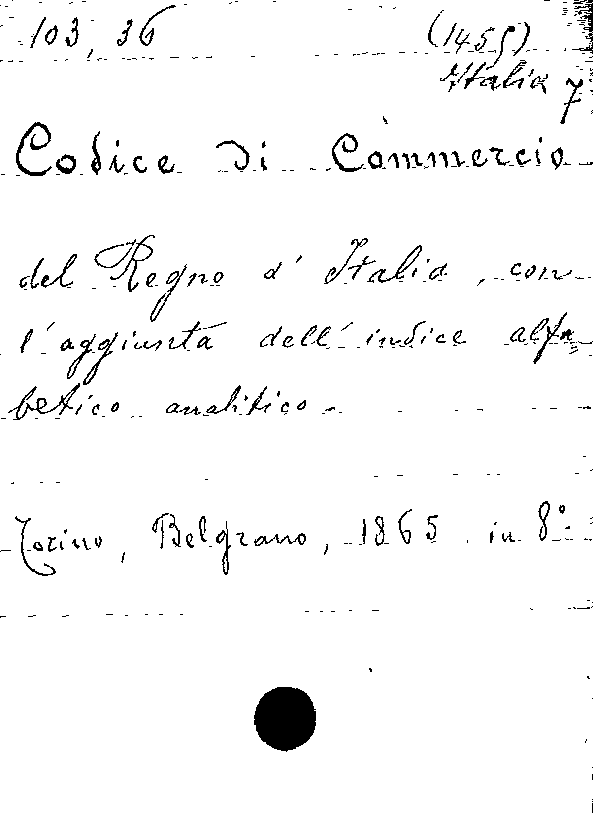 103, 36 (1455)
Italia 7
Codice di Commercio
del Regno d' Italia, con
l'aggiunta dell' indice alfa=
betico analitico.
Torino, Belgrano, 1865 in 8°.